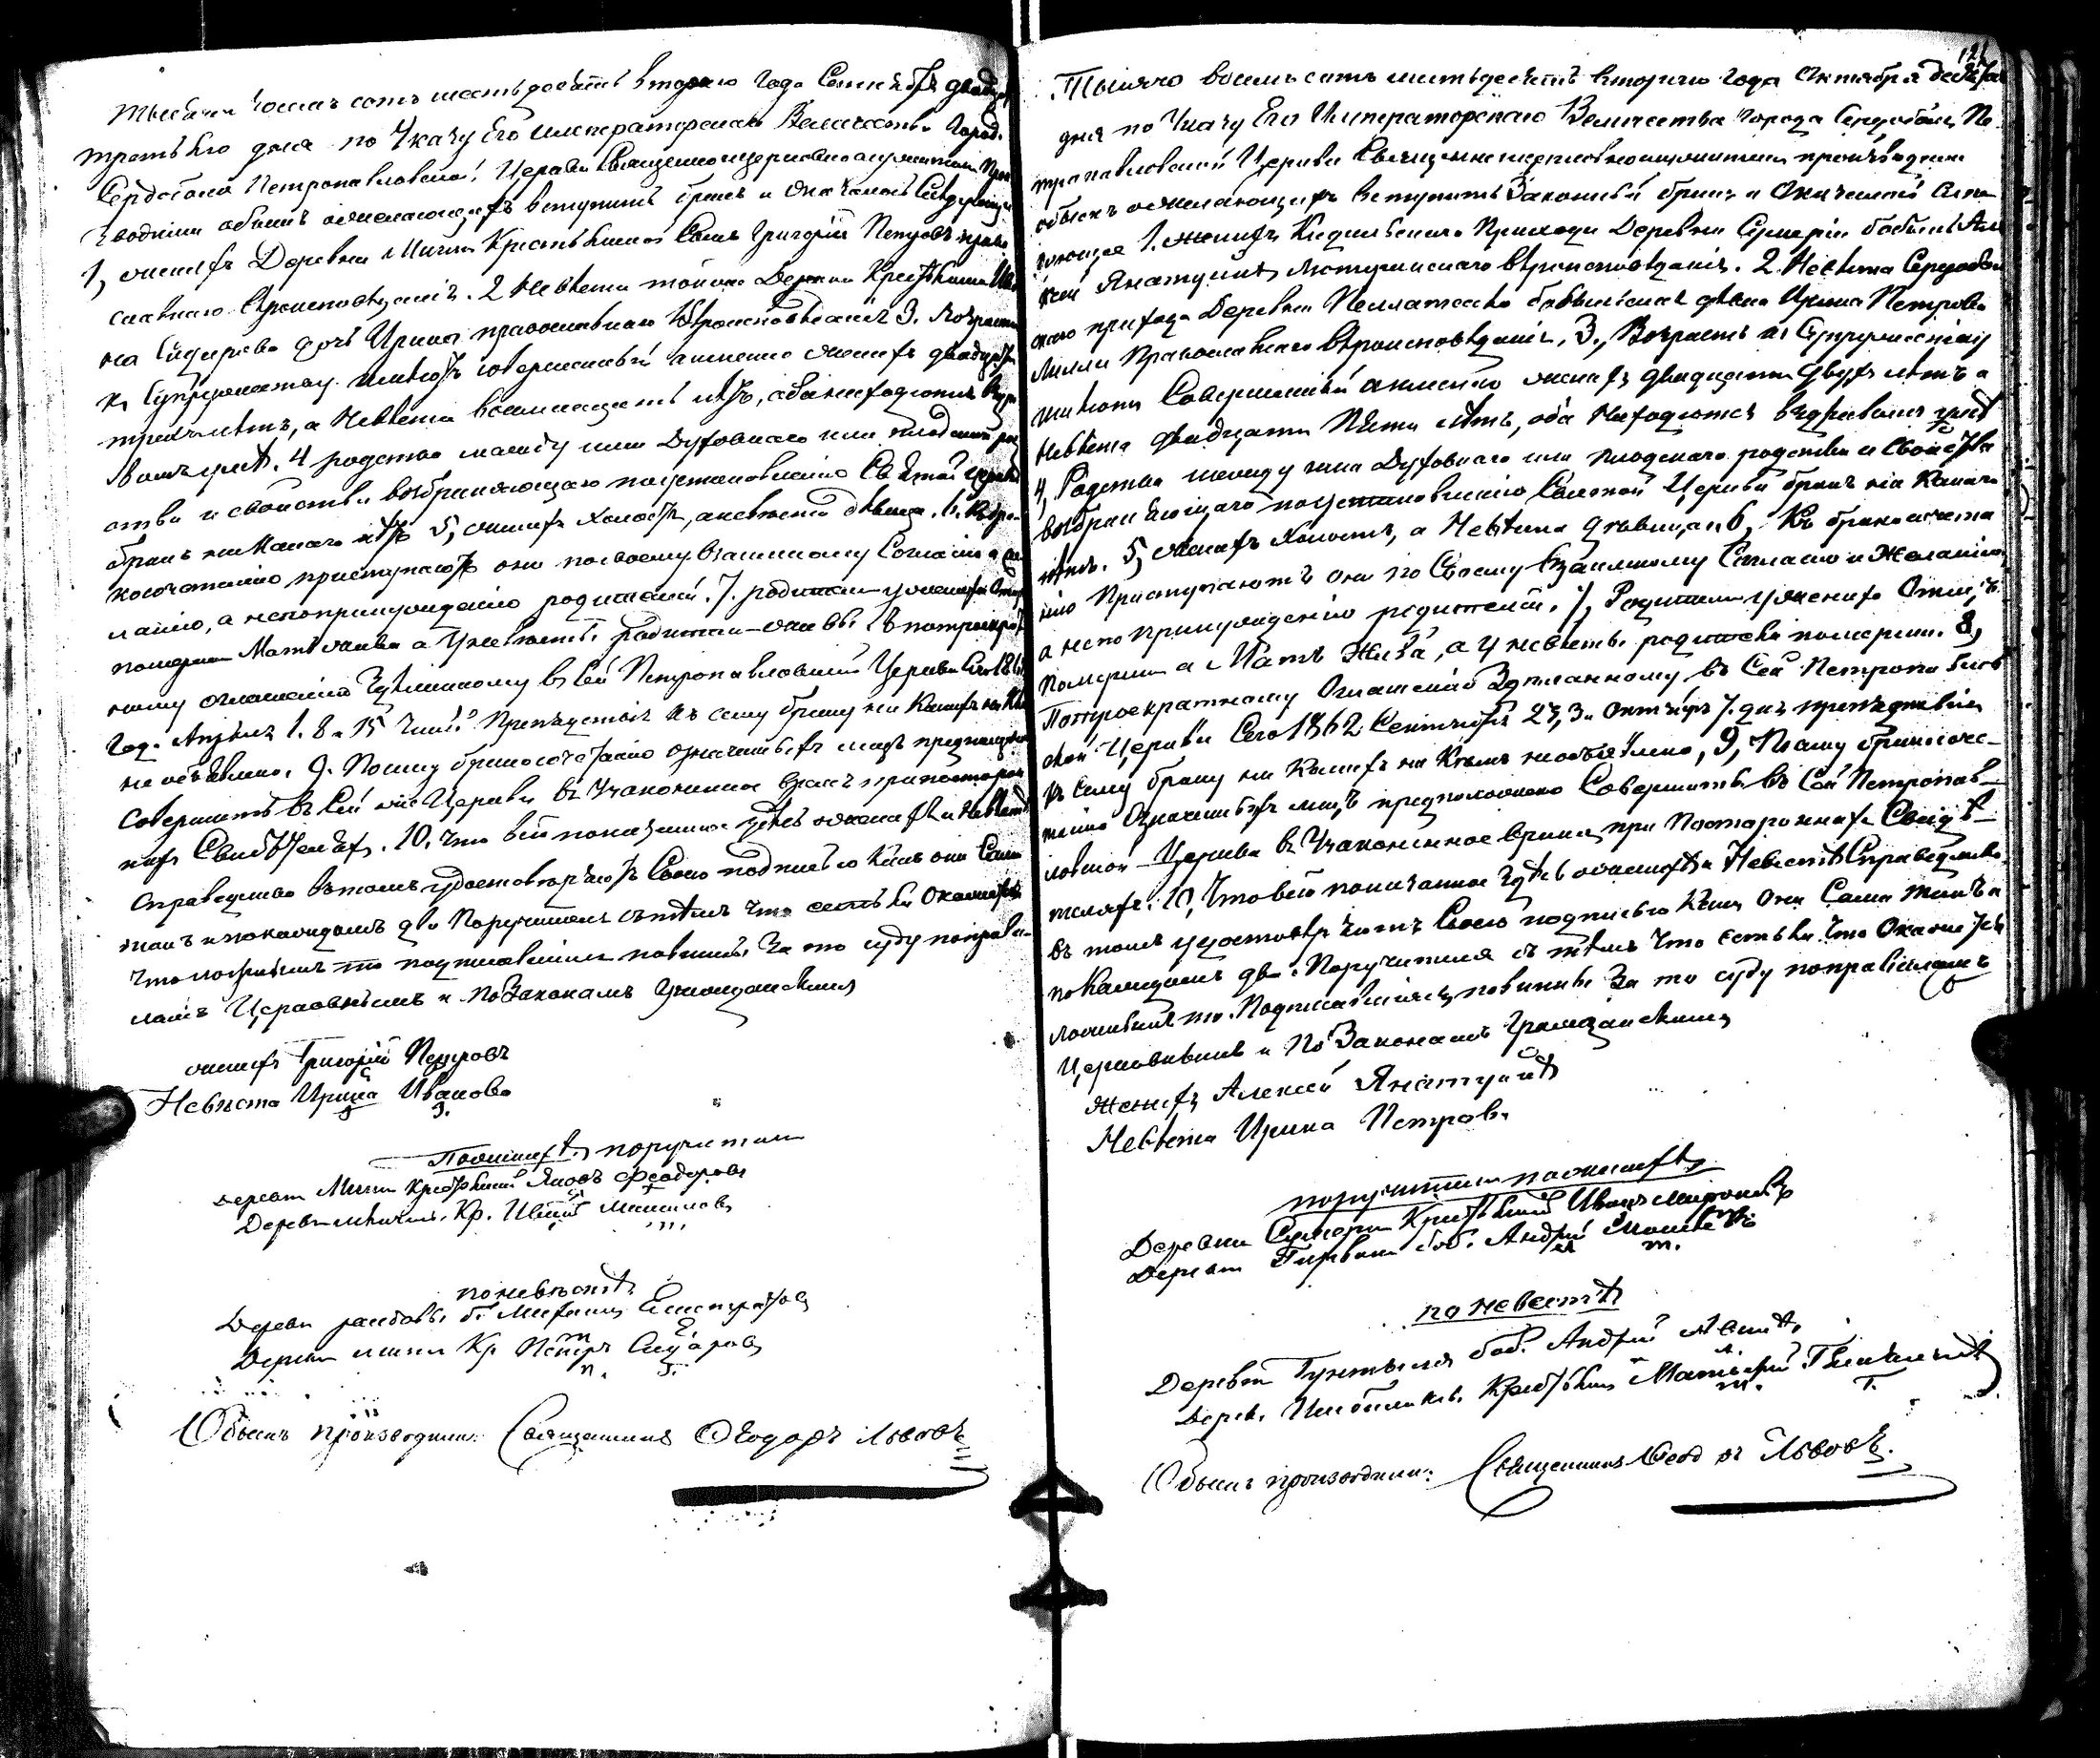 Тысяча восемь сотъ шестьдесятъ втораго года Сентября двадцать
третьяго дня по Указу Его Императорскаго Величества Города
Сердоболя Петропавловской Церкви Священноцерковнослужители про
изводили обыскъ о желающихъ вступить бракъ и оказалось следующее
1, женихъ Деревни Крестьянинъ Сынъ Григорій Петровъ право
славнаго вѣроисповѣданія. 2 Невѣста той же Деревни Крестьянина Ива
на Сидорова дочь Ирина православнаго вѣроисповѣданія 3. Возрастъ
къ Супружеству имѣютъ совершенный а именно женихъ двадцати
трехъ лѣтъ, а Невѣста восемнадцати лѣтъ, оба находятся въ здра
вомъ умѣ. 4 родства между ими духовнаго или плотскаго род
ства и свойства возбраняющаго по установленію Святой Церкви
бракъ никакого нѣтъ 5, женихъ холостъ, а невѣста дѣвица. 6. Къ бра
косочетанію приступаютъ они по своему взаимному Согласію и же
ланію, а не по принужденію родителей. 7. родители у жениха Отецъ
померши Мать жива а У невѣсты родители живы 8 по троекрат
ному оглашенію Здѣланному въ Сей Петропавловской Церкви Сего 1862
года Апрѣля 1. 8 и 15 чиселъ Препятствія къ сему браку ни какихъ ни кѣмъ
не объявлено. 9. По сему бракосочетанію означенныхъ лицъ предположено
Совершить въ Сей же Церкви въ Узаконенное время при посторон
нихъ Свидѣтеляхъ. 10. что всё показанное здѣсь о женихѣ и Невѣстѣ
Справедливо въ томъ удостовѣряютъ Своею подписью какъ они Сами
такъ и по каждомъ два Поручителя съ тѣмъ что если Окажется
что ложнымъ то подписавшіеся повинны За то суду по прави
ламъ Церковнымъ и по Законамъ Гражданскимъ
женихъ Григорій Петровъ
Невѣста Ирина Иванова
По женихѣ поручители
Деревни Крестьянинъ Яковъ Феодоровъ
Деревни Кр.
по невѣстѣ
Деревни
Деревни Кр Петръ Сидоровъ
Обыскъ производили: Священникъ Ѳеодоръ Львовъ
121
Тысяча восемь сотъ шестьдесятъ втораго года Октября десятаго
дня по Указу Его Императорскаго Величества Города Сердоболя Пе
тропавловской Церкви Священноцерковнослужители производили
обыскъ о желающихъ вступить Законный бракъ и Оказалось слѣ
дующее 1. женихъ Кидельскаго Прихода Деревни Сумеріи бобыль Але
ксѣй Янатуинъ Лютеранскаго вѣроисповѣданія. 2. Невѣста Сердоболь
скаго прихода Деревни бобыльская дѣвка Ирина Петрова
Православнаго вѣроисповѣданія. 3, Возрастъ къ Супружеству
имѣютъ Совершенный а именно женихъ двадцати двухъ лѣтъ а
Невѣста двадцати Пяти лѣтъ, оба Находятся въ здравомъ умѣ
4, Родства между ими духовнаго или плотскаго родства и свойства
возбраняющаго по установленію Святой Церкви бракъ ни какого
нѣтъ. 5, женихъ Холостъ, а Невѣста дѣвица, 6, Къ бракосочета
нію Приступаютъ они по Своему Взаимному Согласію и Желанію
а не по Принужденію родителей. 7, Родители у жениха Отецъ
Померши а Мать Жива, а у невѣсты родители померши. 8,
По троекратному Оглашенію Здѣланному въ Сей Петропавлов
ской Церкви Сего 1862 Сентября 23, 30 Октября 7 дня препятствія
къ Сему браку ни Какихъ ни Кѣмъ необъявлено, 9, По сему бракосоче
танію Означенныхъ лицъ предположено Совершить въ Сей Петропав
ловской Церкви въ Узаконенное время, при Постороннихъ Свидѣ
теляхъ. 10, Что всё показанное здѣсь о женихѣ и Невѣстѣ Справедливо
въ томъ удостовѣряютъ Своею подписью Какъ они Сами такъ и
по Каждомъ два Поручителя съ тѣмъ что если что Окажется
ложнымъ то Подписавшіеся повинны За то суду по правиламъ
Церковнымъ и По Законамъ Гражданскимъ
женихъ Алексѣй Янатуинъ
Невѣста Ирина Петрова
поручители по женихѣ
Деревни Сумеріи Крестьянинъ Иванъ Мироновъ
Деревни боб. Андрей
по невестѣ
Деревни боб. Андрей
Дерев. Крестьянинъ Матвей
Обыскъ производили: Священникъ Ѳеодоръ Львовъ.